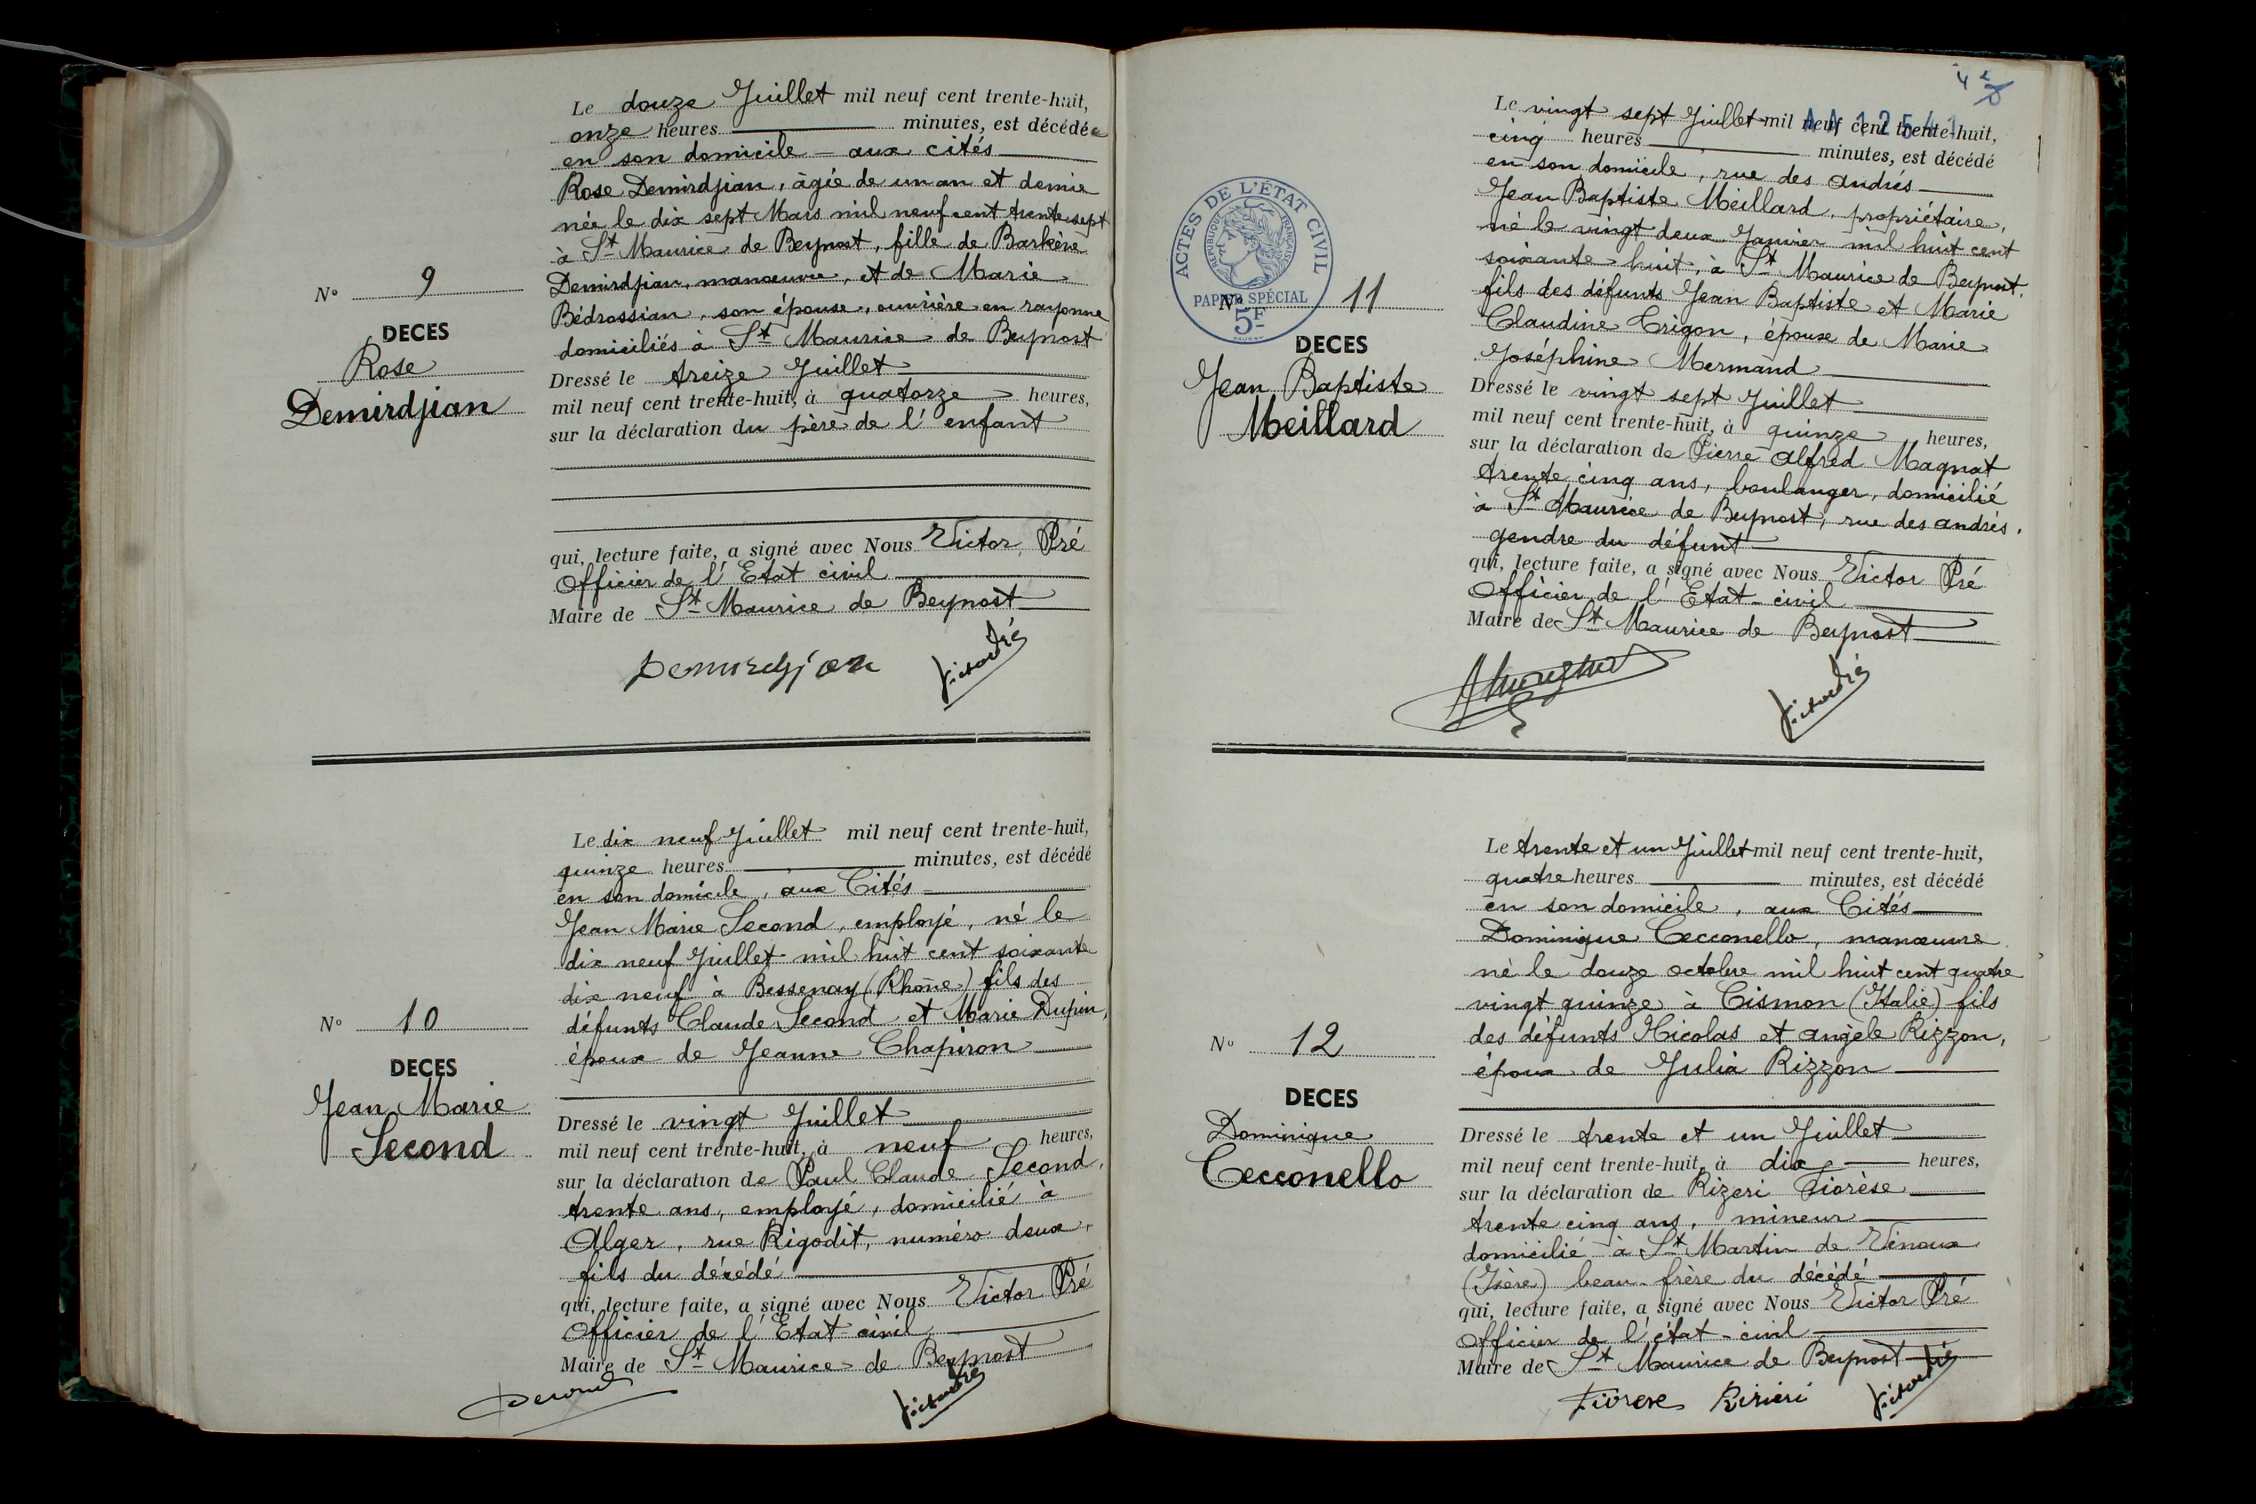 Le douze Juillet mil neuf cent trente-huit,
onze heures minutes, est décédée
en son domicile - aux cités
Rose Demirdjian, âgée de un an et demie
née le dix sept Mars mil neuf cent trente sept
à St Maurice de Beynost, fille de Barkève
Demirdjian, manœuvre, et de Marie
Bédrossian, son épouse, ouvrière en rayonne
domiciliés à St Maurice de Beynost
N° 9
DECES
Rose
Demirdjian
Dressé le treize Juillet
mil neuf cent trente-huit, à quatorze heures,
sur la déclaration du père de l'enfant
qui, lecture faite, a signé avec Nous Victor Pré
Officier de l'Etat civil
Maire de St Maurice de Beynost
Demirdjian Victor Pré
Le dix neuf Juillet mil neuf cent trente-huit,
quinze heures minutes, est décédé
en son domicile, aux Cités
Jean Marie Second, employé, né le
dix neuf Juillet mil huit cent soixante
dix neuf à Bessenay (Rhône) fils des
défunts Claude Second et Marie Dupin,
époux de Jeanne Chapiron
N° 10
DECES
Jean Marie
Second
Dressé le vingt Juillet
mil neuf cent trente-huit, à neuf heures,
sur la déclaration de Paul Claude Second,
trente ans, employé, domicilié à
Alger, rue Rigodit, numéro deux,
fils du décédé
qui, lecture faite, a signé avec Nous Victor Pré
Officier de l'Etat civil
Maire de St Maurice de Beynost
Second Victor Pré
4e
AA 12541
Le vingt sept Juillet mil neuf cent trente-huit,
cinq heures minutes, est décédé
en son domicile, rue des Andrés
Jean Baptiste Meillard, propriétaire,
né le vingt deux Janvier mil huit cent
soixante huit, à St Maurice de Beynost,
fils des défunts Jean Baptiste et Marie
Claudine Trigon, époux de Marie
Joséphine Mermand
ACTES DE L'ÉTAT CIVIL
RÉPUBLIQUE FRANÇAISE
PAPIER SPÉCIAL
5F
N° 11
DECES
Jean Baptiste
Meillard
Dressé le vingt sept Juillet
mil neuf cent trente-huit, à quinze heures,
sur la déclaration de Pierre Alfred Magnat
trente cinq ans, boulanger, domicilié
à St Maurice de Beynost, rue des Andrés,
gendre du défunt
qui, lecture faite, a signé avec Nous Victor Pré
Officier de l'Etat-civil
Maire de St Maurice de Beynost
Victor Pré
Le trente et un Juillet mil neuf cent trente-huit,
quatre heures minutes, est décédé
en son domicile, aux Cités
Dominique Cecconello, manœuvre
né le douze octobre mil huit cent quatre
vingt quinze à Cismon (Italie) fils
des défunts Nicolas et Angèle Rizzon,
époux de Julia Rizzon
N° 12
DECES
Dominique
Cecconello
Dressé le trente et un Juillet
mil neuf cent trente-huit, à dix heures,
sur la déclaration de Rizeri Fiorèse
trente cinq ans, mineur
domicilié à St Martin de Vinoux
(Isère) beau-frère du décédé
qui, lecture faite, a signé avec Nous Victor Pré
Officier de l'état-civil
Maire de St Maurice de Beynost
Fiorese Rizieri Victor Pré